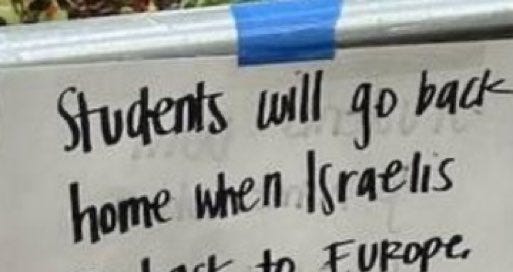 Students will go back
home when Israelis
back to EUROPE.